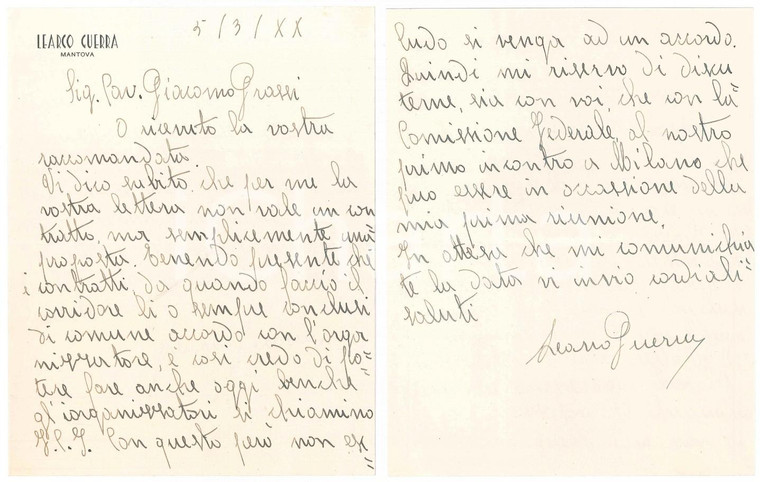 LEARCO GUERRA
MANTOVA
5/3/XX
Sig. Cav. Giacomo Grassi
O ricevuto la vostra
raccomandata
Vi dico subito che per me la
vostra lettera non vale un con
tratto, ma semplicemente una=
proposta. Tenendo presente che
i contratti, da quando faccio il
corridore li o sempre conclusi
di comune accordo con l'orga
nizzatore, e così credo di po=
tere fare anche oggi benche
gl'iorganizzatori si chiamino
G.C.G. Con questo però non es=
ludo si venga ad un accordo.
Quindi mi riservo di discu
terne, sia con voi, che con la=
Comissione Federale, al nostro
primo incontro a Milano che
può essere in occassione della
mia prima riunione.
In attesa che mi comunichia
te la data vi invio cordiali=
saluti
Learco Guerra